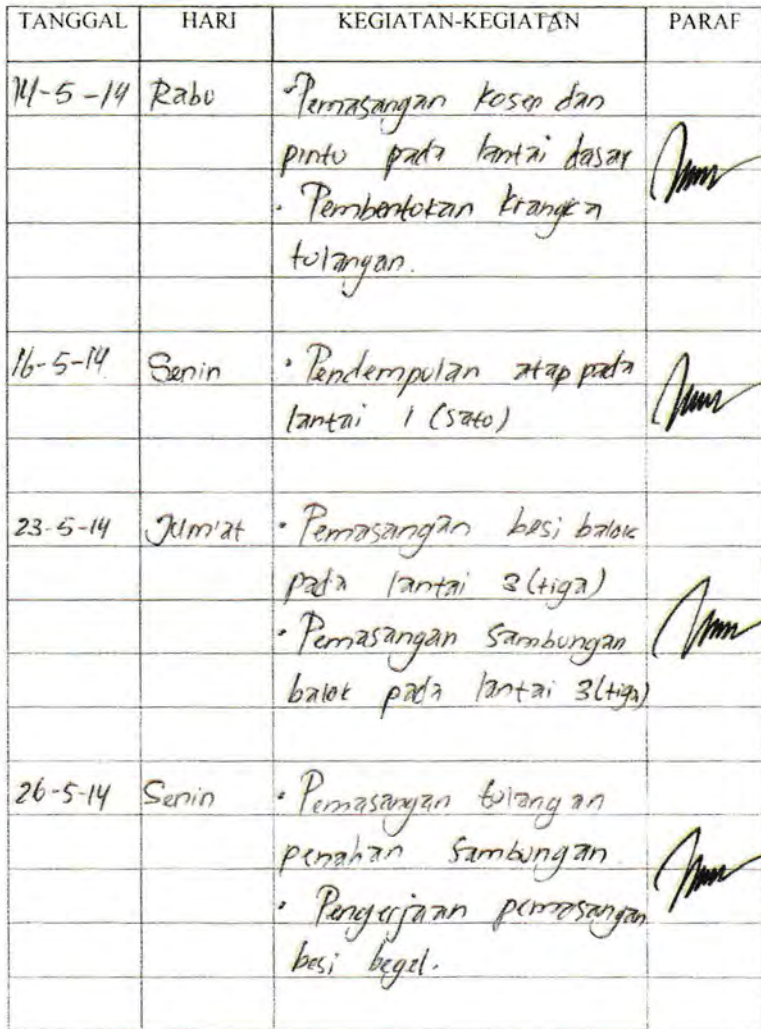 TANGGAL HARI KEGIATAN-KEGIATAN PARAF
14-5-14 Rabu • Pemasangan kosen dan
pintu pada lantai dasar
• Pembentukan krangka
tulangan.
16-5-14 Senin • Pendempulan atap pada
lantai 1 (satu)
23-5-14 Jum'at • Pemasangan besi balok
pada lantai 3 (tiga)
• Pemasangan sambungan
balok pada lantai 3 (tiga)
26-5-14 Senin • Pemasangan tulangan
penahan sambungan
• Pengerjaan pemasangan
besi begel.